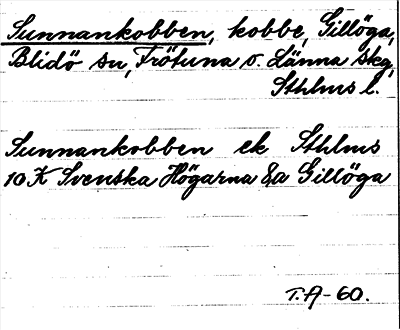 Sunnankobben, kobbe, Gillöga,
Blidö sn, Frötuna o. Länna skg,
Sthlms l.
Sunnankobben ek Sthlms
10 K Svenska Högarna &a Gillöga
T.A-60.